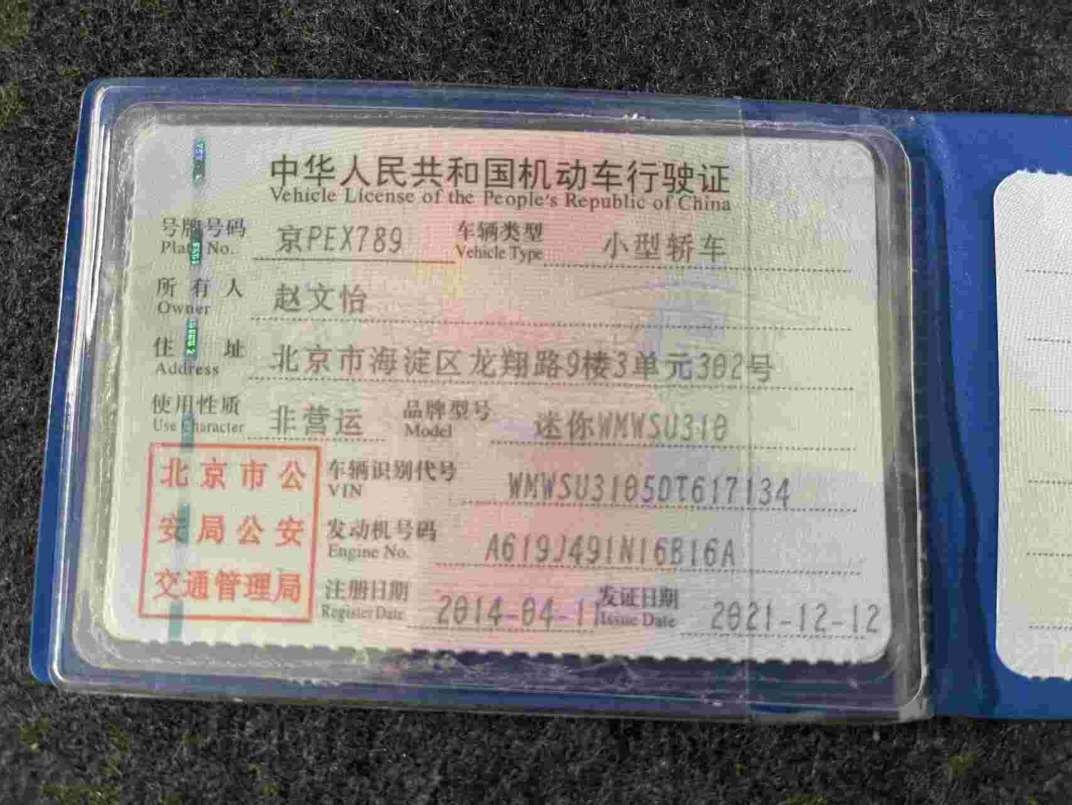 中华人民共和国机动车行驶证
Vehicle License of the People's Republic of China
号牌号码 京PEX789 车辆类型 小型轿车
Plate No. Vehicle Type
所有人 赵文怡
Owner
住址 北京市海淀区龙翔路9楼3单元302号
Address
使用性质 非营运 品牌型号 迷你WMWSU310
Use Character Model
北京市公
安局公安
交通管理局
车辆识别代号 WMWSU3105DT617134
VIN
发动机号码 A619J491N16B16A
Engine No.
注册日期 2014-04-11 发证日期 2021-12-12
Register Date Issue Date